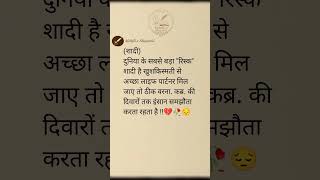 (शादी)
दुनिया के सबसे बड़ा "रिस्क"
शादी है खुशकिस्मती से
अच्छा लाइफ पार्टनर मिल
जाए तो ठीक वरना. कब्र. की
दिवारों तक इंसान समझौता
करता रहता है !!💔🥀😔